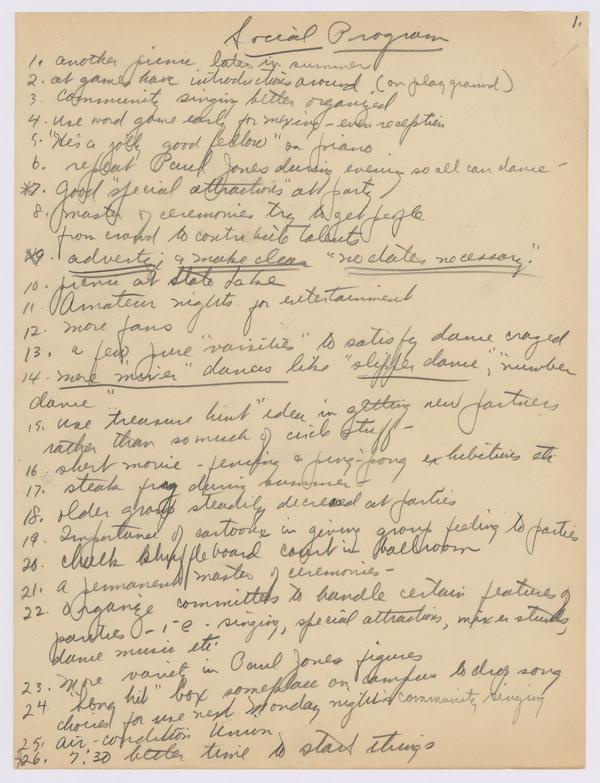 1.
Social Program
1. another picnic later in summer
2. at games have introductions around (on playground)
3. Community singing better organized
4. use word game early for mixing - even reception
5. "He's a jolly good fellow" on piano
6. repeat Paul Jones during evening so all can dance -
*7. Good "special attractions" at party
8. master of ceremonies try to get people
from crowd to contribute talents
*9. advertise & make clear "no dates necessary."
10. picnic at State Lake
11. Amateur nights for entertainment
12. more fans
13. a few pure "varsities" to satisfy dance crazed
14. more "mixer" dances like "slipper dance", "number
dance"
15. use treasure hunt "idea in getting new partners
rather than so much of circle stuff -
16. short movie - fencing & ping-pong exhibitions etc
17. steak fry during summer -
18. older group steadily decreased at parties
19. Importance of cartoons in giving group feeling to parties
20. chalk shuffleboard court in ballroom
21. a permanent master of ceremonies -
22. organize committees to handle certain features of
parties - i-e - singing, special attractions, mixer stunts,
dance music etc
23. More variety in Paul Jones figures
24. "Song hit" box someplace on campus to drop song
choices for use next Monday night's community singing
25. air-condition Union
*26. 7:30 better time to start things